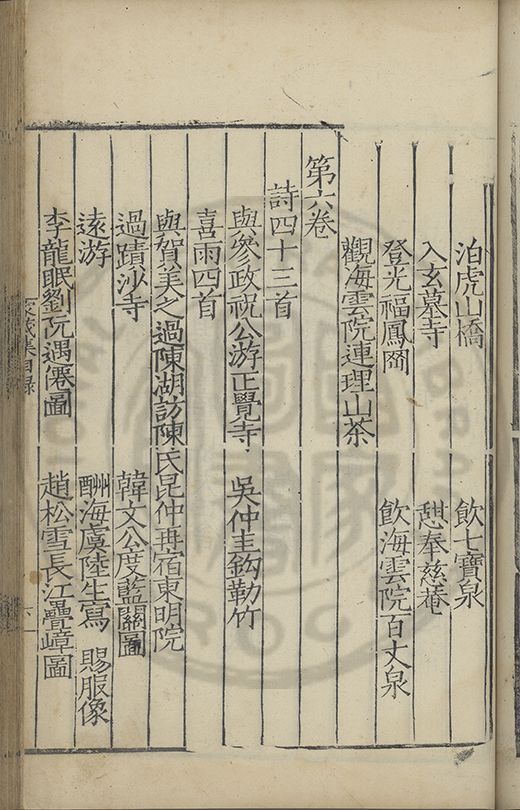 泊虎山橋 飲七寶泉
入玄墓寺 憇奉慈菴
登光福鳳岡 飲海雲院百丈泉
觀海雲院連理山茶
第六卷
詩四十三首
與參政祝公游正覺寺 吳仲圭鈎勒竹
喜雨四首
與賀美之過陳湖訪陳氏昆仲再宿東明院
過蹟沙寺 韓文公度藍關圖
遠游 酬海虞陸生寫 賜服像
李龍眠劉阮遇僊圖 趙松雪長江疊嶂圖
家藏集目錄
六